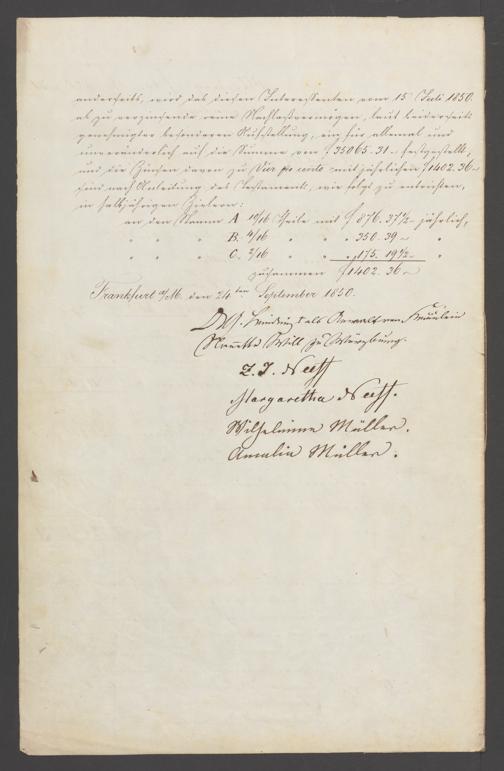 anderseits, wird das diesen Interessenten vom 15 Juli 1850.
ab zu verzinsende reine Nachlaßvermögen, laut beiderseits
genehmigter besonderen Aufstellung, ein für allemal und
unveränderlich auf die Summe von f 35065. 31 – festgestellt,
und die Zinsen davon zu Vier pro cento mit jährlichen f 1402. 36 –
sind nach Anleitung des Testaments, wie folgt zu entrichten,
in halbjährigen Zielern:
an den Stamm A 10/16 Theile mit f 876. 37½ – jährlich,
" " " B. 4/16 " " " 350. 39. – "
" " " C. 2/16 " " " 175. 19½ – "
zusammen f 1402. 36 –
Frankfurt a/M. den 24ten September 1850.
als Anwalt von Fräulein
Nanette Will zu Würzburg.
Z. J. Neeff
Margaretha Neeff.
Wilhelmine Müller.
Amalia Müller.